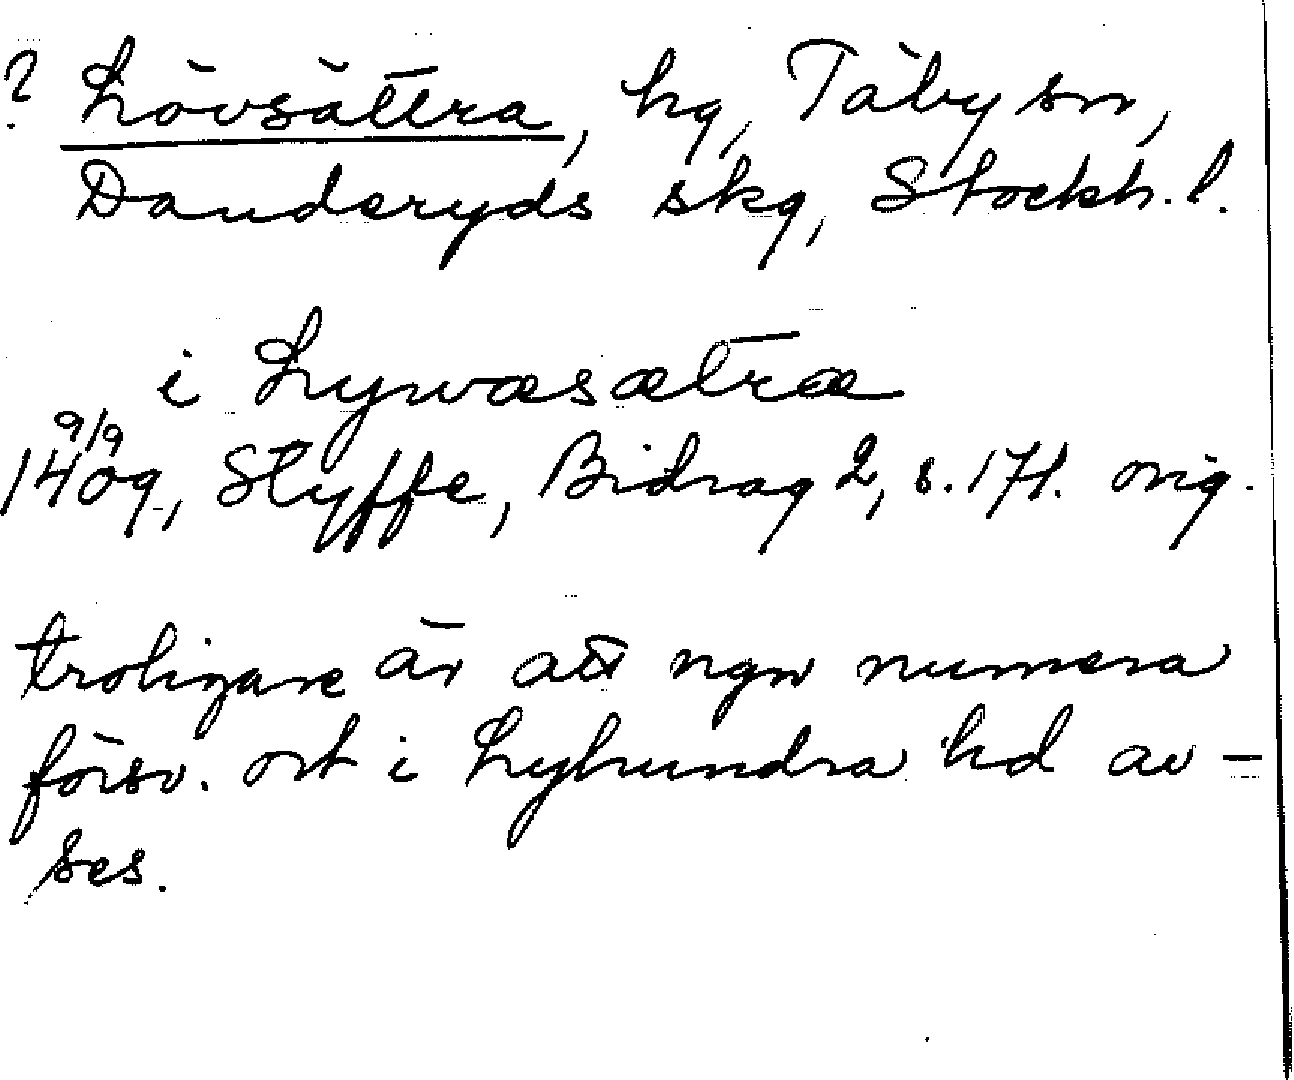 ? Lövsättra, hg, Täby sn,
Danderyds skg, Stockh. l.
i Lywæsætræ
9/9
1409, Styffe, Bidrag 2, s. 171. orig.
troligare är att ngn numera
försv. ort i Lyhundra hd av-
ses.